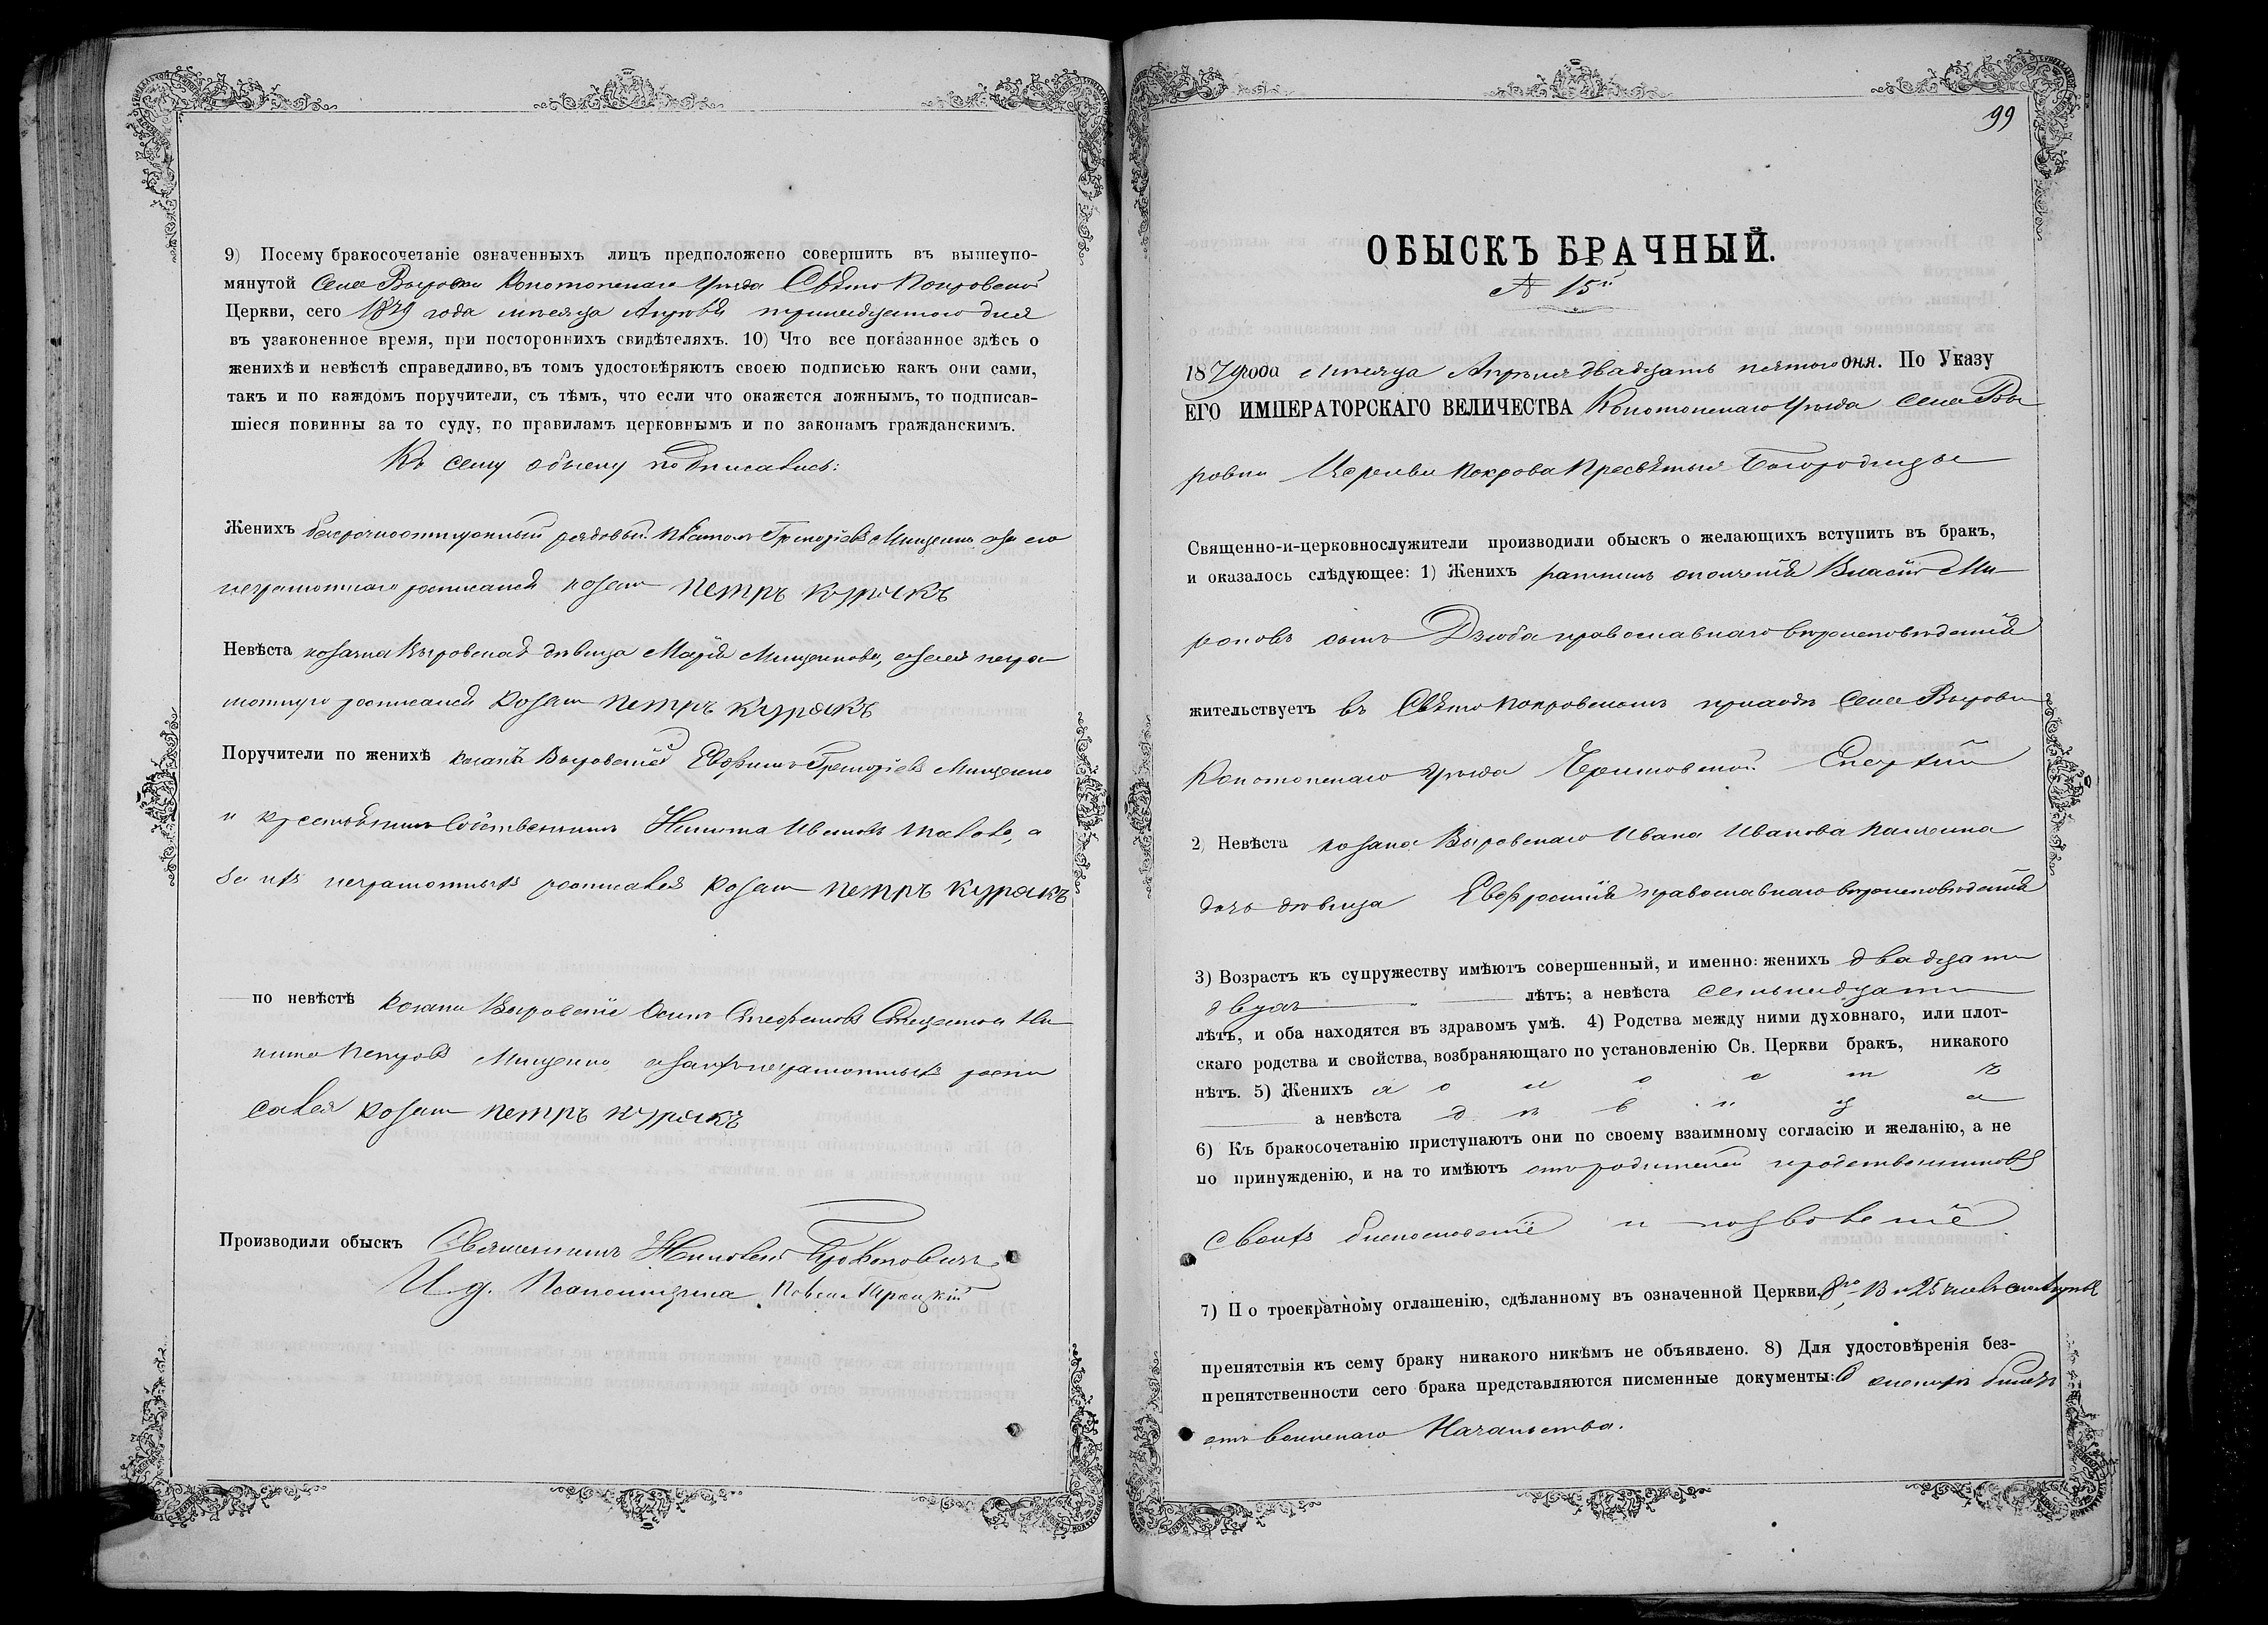 9) Посему бракосочетаніе означенныхъ лицъ предположено совершить въ вышеупо-
мянутой Села Выровки Конотопскаго Уѣзда Свято Покровской
Церкви, сего 1879 года мѣсяца Апрѣля тринадцатого дня
въ узаконенное время, при постороннихъ свидѣтеляхъ. 10) Что все показанное здѣсь о
женихѣ и невѣстѣ справедливо, въ томъ удостовѣряютъ своею подписью какъ они сами,
такъ и по каждомъ поручители, съ тѣмъ, что если что окажется ложнымъ, то подписав-
шіеся повинны за то суду, по правиламъ церковнымъ и по законамъ гражданскимъ.
Къ сему обыску подписались:
Женихъ безсрочноотпускный рядовый Григоріевъ Мищенко а за его
неграмотнаго росписался козакъ Петръ Курякъ
Невѣста козачка Выровская дѣвица Марія Мищенкова, а за нея негра
мотную росписался козакъ Петръ Курякъ
Поручители по женихѣ козакъ Выровскій Евфимъ Григоріевъ Мищенко
и крестьянинъ собственникъ Никита Ивановъ а
за ихъ неграмотныхъ росписался козакъ Петръ Курякъ
по невѣстѣ козаки Выровскіе Стефановъ и Ни
кита Петровъ Мищенко а за ихъ неграмотныхъ роспи
сался козакъ Петръ Курякъ
Производили обыскъ Священникъ Прокоповичъ
И. д. Псаломщика Павелъ Троицкій
99
ОБЫСКЪ БРАЧНЫЙ.
№ 15й
1879 года мѣсяца Апрѣля двадцать пятого дня. По Указу
ЕГО ИМПЕРАТОРСКАГО ВЕЛИЧЕСТВА Конотопскаго Уѣзда села Вы
ровки Церкви Покрова Пресвятыя Богородицы
Священно-и-церковнослужители производили обыскъ о желающихъ вступить въ бракъ,
и оказалось слѣдующее: 1) Женихъ ратникъ ополченія Власій Ми
роновъ сынъ Дзюба православнаго вѣроисповѣданія
жительствуетъ въ Свято Покровскомъ приходѣ села Выровки
Конотопскаго Уѣзда Черниговской Епархіи
2) Невѣста козака Выровскаго Ивана Иванова
дочь дѣвица Евфросинія православнаго вѣроисповѣданія
3) Возрастъ къ супружеству имѣютъ совершенный, и именно: женихъ двадцати
двухъ лѣтъ; а невѣста семнадцати
лѣтъ, и оба находятся въ здравомъ умѣ. 4) Родства между ними духовнаго, или плот-
скаго родства и свойства, возбраняющаго по установленію Св. Церкви бракъ, никакого
нѣтъ. 5) Женихъ холостъ
а невѣста дѣвица
6) Къ бракосочетанію приступаютъ они по своему взаимному согласію и желанію, а не
по принужденію, и на то имѣютъ отъ родителей и родственниковъ
своихъ благословеніе и позволеніе
7) По троекратному оглашенію, сдѣланному въ означенной Церкви 8го, 13 и 25 числъ сего Апрѣля
препятствія къ сему браку никакого никѣмъ не объявлено. 8) Для удостовѣренія без-
препятственности сего брака представляются писменные документы: билетъ
отъ воинскаго Начальства.